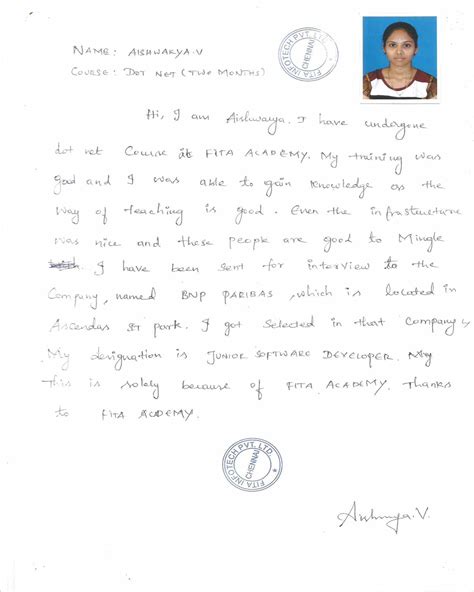 NAME: AISHWARYA.V
COURSE: DOT NET (TWO MONTHS)
FITA INFOTECH PVT. LTD
CHENNAI
Hi, I am Aishwarya. I have undergone
dot net Course at FITA ACADEMY. My training was
good and I was able to gain knowledge as the
way of teaching is good. Even the infrastructure
was nice and these people are good to Mingle
I have been sent for interview to the
Company, named BNP PARIBAS, which is located in
Ascendas IT park. I got Selected in that Company,
My designation is JUNIOR SOFTWARE DEVELOPER. My
This is solely because of FITA ACADEMY. Thanks
to FITA ACADEMY.
FITA INFOTECH PVT. LTD
CHENNAI
Aishwarya.V.